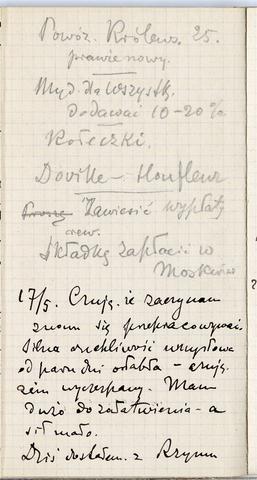 Powóz. Królews. 25.
prawie nowy.
Myd. dla wszystk.
dodawać 10-20%
Kółeczki.
Doville - Honfleur
Proszę Zawiesić wypłaty
czerw.
Składkę zapłacić w
Moskwie
17/5. Czuję, że zaczynam
znowu się przepracowywać.
Silna wrażliwość umysłowa
od paru dni osłabła - czuję
się wyczerpany. Mam
dużo do załatwienia - a
sił mało.
Dziś dostałem z Rzymu